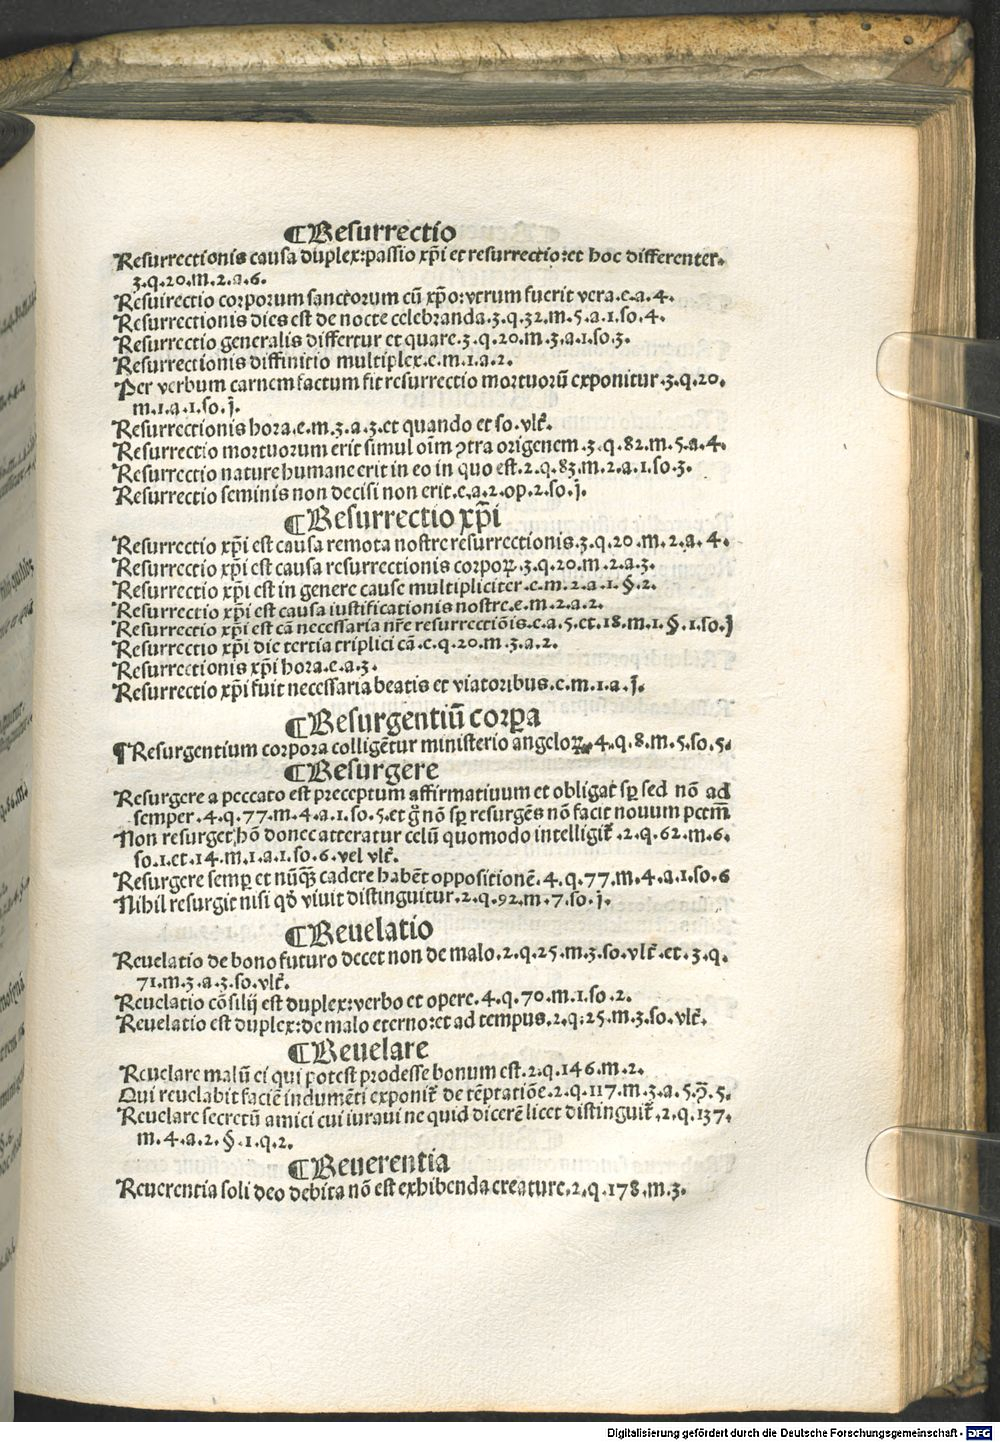 ¶Resurrectio
Resurrectionis causa duplex:passio xp̄i et resurrectio:et hoc differenter.
3.q.20.m.2.a.6.
Resurrectio corporum sanctorum cū xp̄o:vtrum fuerit vera.e.a.4.
Resurrectionis dies est de nocte celebranda.3.q.32.m.5.a.1.so.4.
Resurrectio generalis differtur et quare.3.q.20.m.3.a.1.so.3.
Resurrectionis diffinitio multiplex.e.m.1.a.2.
Per verbum carnem factum fit resurrectio mortuorū exponitur.3.q.20.
m.1.a.1.so.j.
Resurrectionis hora.e.m.3.a.3.et quando et so.vlt̄.
Resurrectio mortuorum erit simul oīm ꝯtra origenem.3.q.82.m.5.a.4.
Resurrectio nature humane erit in eo in quo est.2.q.83.m.2.a.1.so.3.
Resurrectio seminis non decisi non erit.e.a.2.op.2.so.j.
¶Resurrectio xp̄i
Resurrectio xp̄i est causa remota nostre resurrectionis.3.q.20.m.2.a.4.
Resurrectio xp̄i est causa resurrectionis corpoꝝ.3.q.20.m.2.a.3.
Resurrectio xp̄i est in genere cause multipliciter.e.m.2.a.1.§.2.
Resurrectio xp̄i est causa iustificationis nostre.e.m.2.a.2.
Resurrectio xp̄i est cā necessaria nr̄e resurrectiōis.e.a.5.et.18.m.1.§.1.so.j
Resurrectio xp̄i die tertia triplici cā.e.q.20.m.3.a.2.
Resurrectionis xp̄i hora.e.a.3.
Resurrectio xp̄i fuit necessaria beatis et viatoribus.e.m.1.a.j.
¶Resurgentiū corꝑa
¶Resurgentium corpora colligētur ministerio angeloꝝ.4.q.8.m.5.so.5.
¶Resurgere
Resurgere a peccato est preceptum affirmatiuum et obligat sꝑ sed nō ad
semper.4.q.77.m.4.a.1.so.5.et ḡ nō sꝑ resurgēs nō facit nouum pctm̄
Non resurget hō donec atteratur celū quomodo intelligit̄.2.q.62.m.6.
so.1.et.14.m.1.a.1.so.6.vel vlt̄.
Resurgere semꝑ et nūqꝫ cadere habēt oppositionē.4.q.77.m.4.a.1.so.6
Nihil resurgit nisi qd̄ viuit distinguitur.2.q.92.m.7.so.j.
¶Reuelatio
Reuelatio de bono futuro decet non de malo.2.q.25.m.3.so.vlt̄.et.3.q.
71.m.3.a.3.so.vlt̄.
Reuelatio cōsilij est duplex:verbo et opere.4.q.70.m.1.so.2.
Reuelatio est duplex:de malo eterno:et ad tempus.2.q.25.m.3.so.vlt̄.
¶Reuelare
Reuelare malū ei qui potest prodesse bonum est.2.q.146.m.2.
Qui reuelabit faciē indumēti exponit̄ de tēptatiōe.2.q.117.m.3.a.5.p̄.5.
Reuelare secretū amici cui iuraui ne quid dicerē licet distinguit̄.2.q.137.
m.4.a.2.§.1.q.2.
¶Reuerentia
Reuerentia soli deo debita nō est exhibenda creature.2.q.178.m.3.
Digitalisierung gefördert durch die Deutsche Forschungsgemeinschaft - DFG